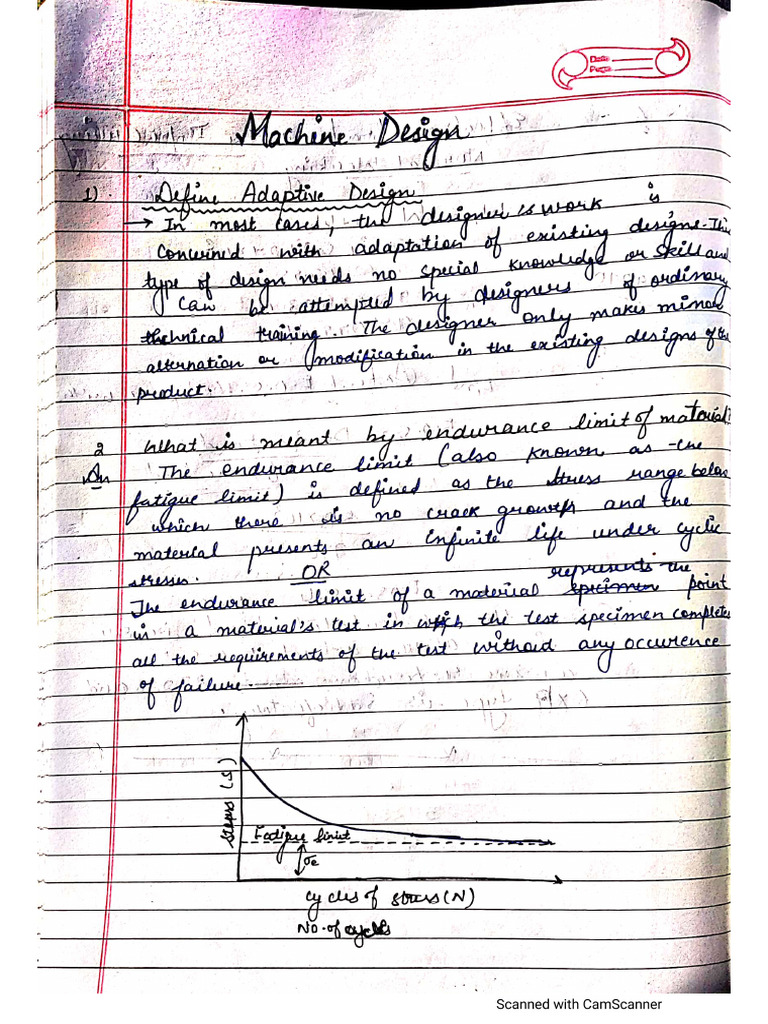 Date
Page
Machine Design
1) Define Adaptive Design
→ In most cases, the designer is work is
Concerned with adaptation of existing designs. This
type of design needs no special knowledge or skill and
Can be attempted by designers of ordinary
technical training. The designer only makes minor
alternation or modification in the existing designs of the
product.
2 What is meant by endurance limit of material?
Ans The endurance limit (also known as the
fatigue limit) is defined as the stress range below
which there is no crack growth and the
material presents an infinite life under cyclic
stresses. OR
represents the
The endurance limit of a material specimen point
in a material's test in which the test specimen completes
all the requirements of the test without any occurence
of failure.
Stress (S)
Fatigue limit
σe
cycles of stress (N)
No. of cycles
Scanned with CamScanner